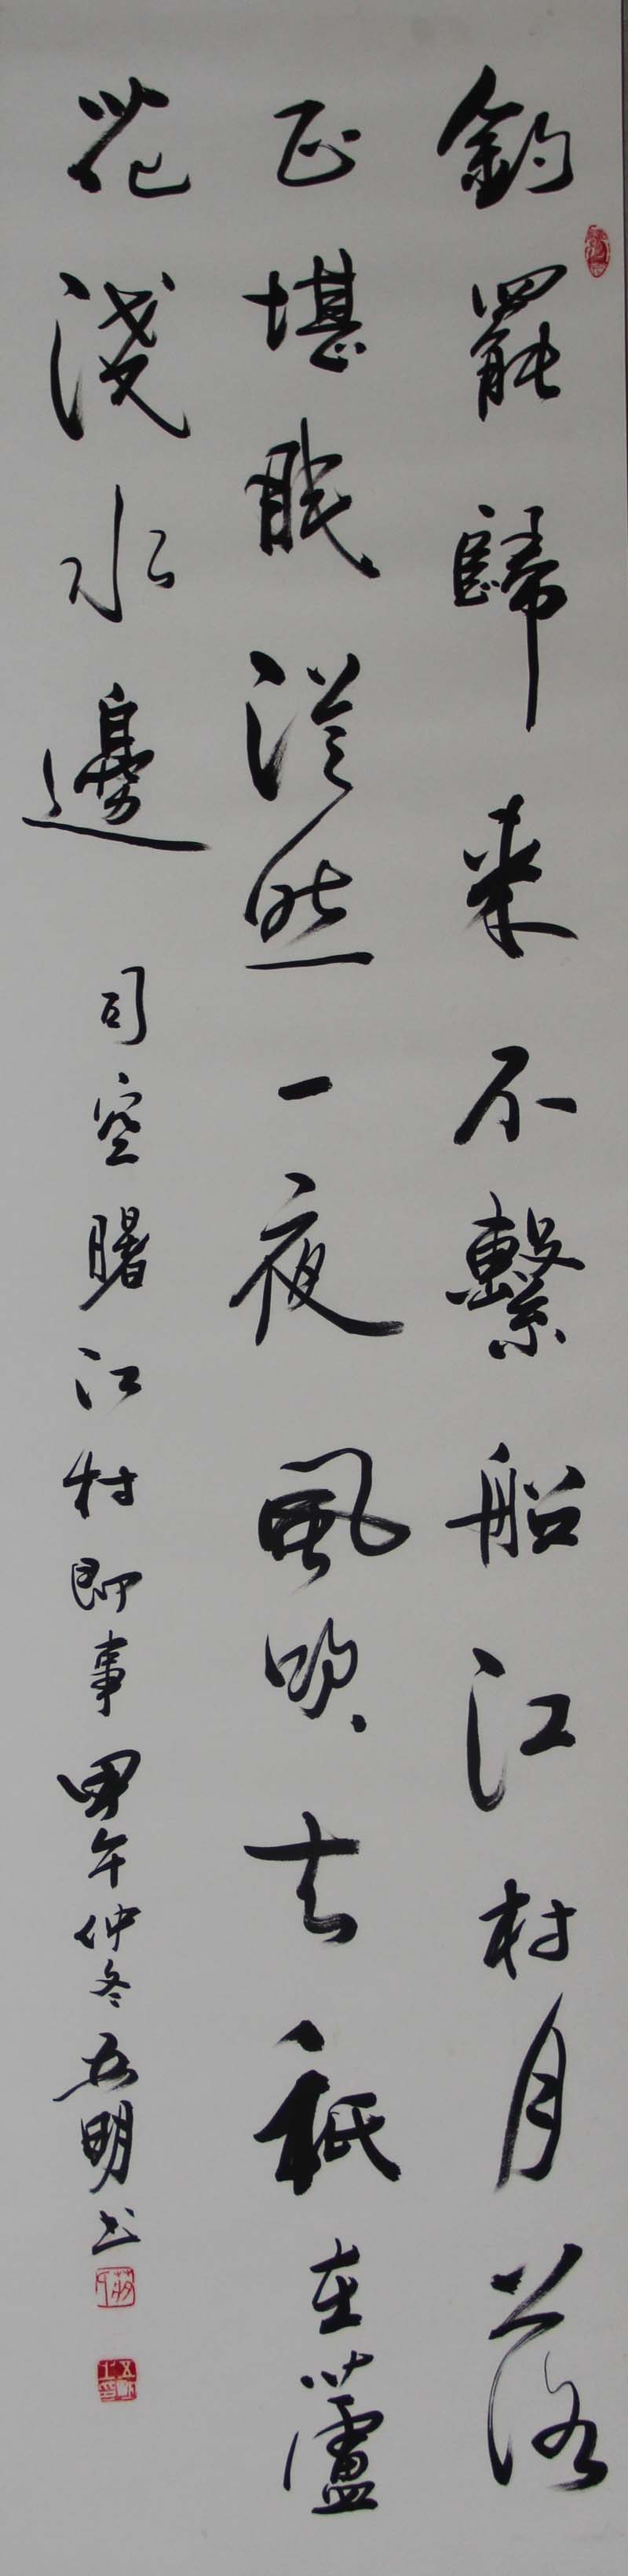 釣罷歸來不繫船江村月落
正堪眠從然一夜風吹去秖在蘆
花淺水邊 司空曙江村即事 甲午仲冬五明书